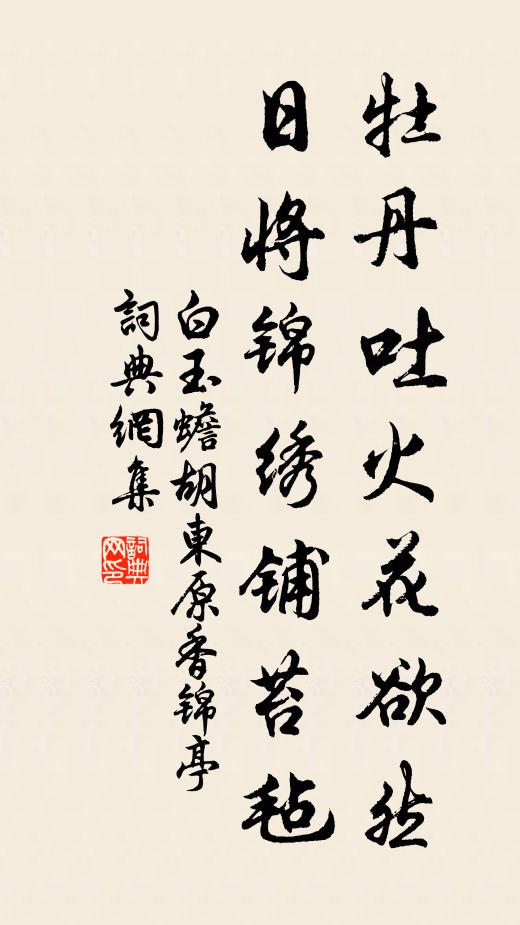 牡丹吐火花欲然
日将锦绣铺苔毡
白玉蟾胡東原香锦亭
詞典網集
詞典网印